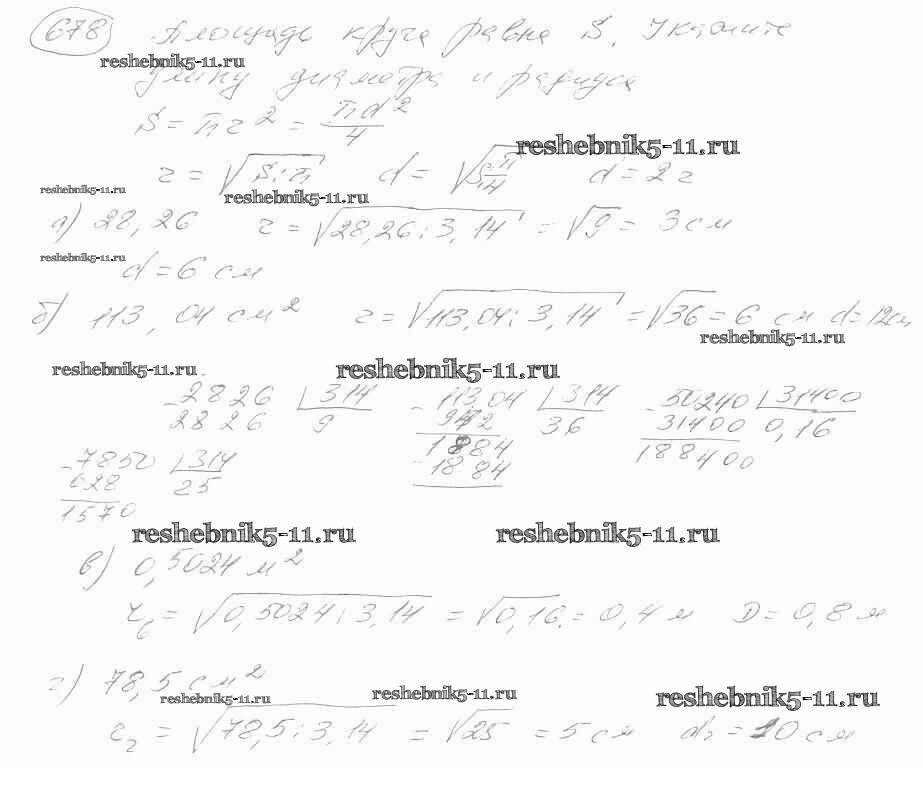 678 Площадь круга равна S. Укажите
reshebnik5-11.ru
длину диаметра и радиуса
S = πr² = πd²/4
reshebnik5-11.ru
r = √S:π d = √S:π/4 d = 2r
reshebnik5-11.ru
reshebnik5-11.ru
а) 28,26 r = √28,26:3,14 = √9 = 3 см
reshebnik5-11.ru
d = 6 см
б) 113,04 см² r = √113,04:3,14 = √36 = 6 см d = 12см
reshebnik5-11.ru
reshebnik5-11.ru reshebnik5-11.ru
-2826 | 314 -113,04 | 314 -50240 | 31400
2826 9 942 36 31400 0,16
1884 188400
-7850 | 314 -1884
628 25
1570
reshebnik5-11.ru reshebnik5-11.ru
в) 0,5024 м²
r = √0,5024:3,14 = √0,16 = 0,4 м D = 0,8 м
г) 78,5 см²
reshebnik5-11.ru reshebnik5-11.ru reshebnik5-11.ru
r₂ = √78,5:3,14 = √25 = 5 см d₂ = 10 см